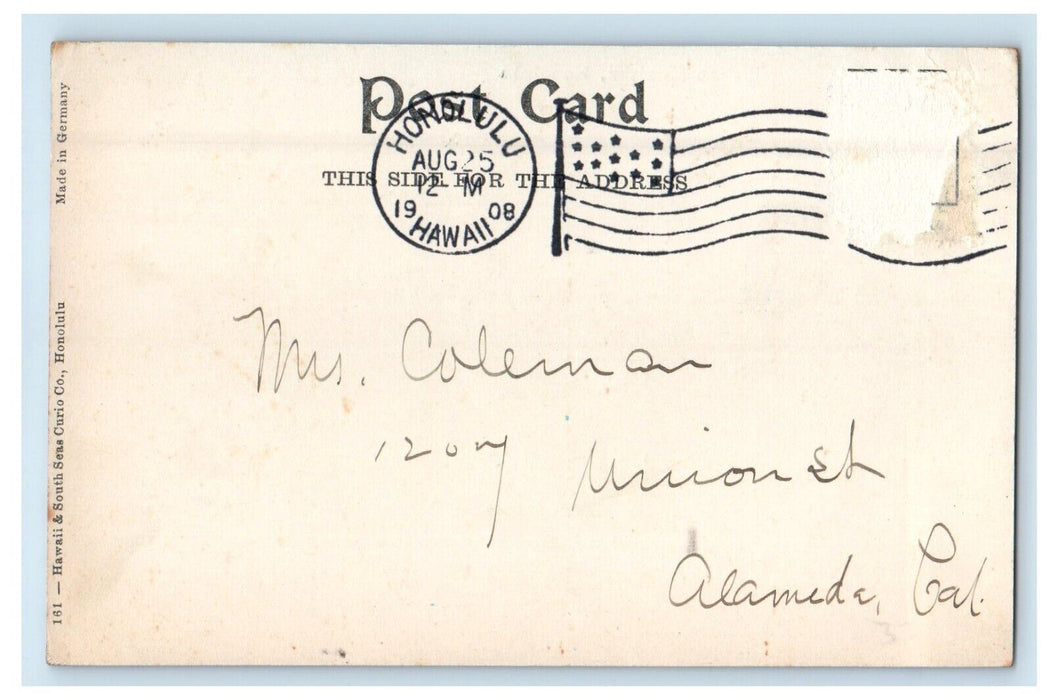 Post Card
THIS SIDE FOR THE ADDRESS
HONOLULU
AUG 25
12 M
19 08
HAWAII
Mrs. Coleman
1207 Union St
Alameda, Cal.
Made in Germany
161 — Hawaii & South Seas Curio Co., Honolulu